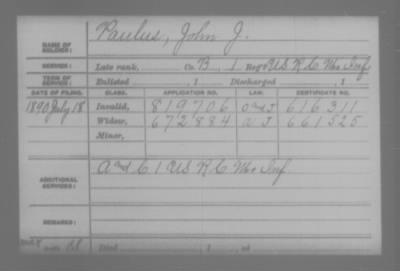 Paulus, John J.
NAME OF SOLDIER:
SERVICE: Late rank, Co. B, 1 Reg't U S R C Mo Inf
TERM OF SERVICE: Enlisted , 1 Discharged , 1
DATE OF FILING. CLASS. APPLICATION NO. LAW. CERTIFICATE NO.
1890 July 18 Invalid, 819706 616311
Widow, 672884 661525
Minor,
ADDITIONAL SERVICES: and C 1 US R C Mo Inf
REMARKS:
Died , 1 , at